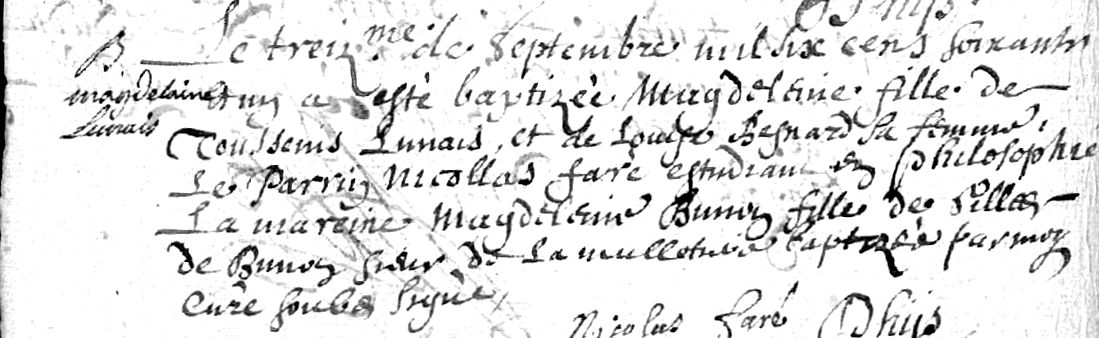 B Le treiz.me de Septembre mil six cens soixante
magdelaine et un a esté baptizée Magdeleine fille de
Lunais Toussents Lunais, et de Louise Besnard sa femme,
Le Parrin Nicollas faré estudiant en Philosophie
La mareine Magdeleine Bunon fille de Gilles
de Bunon sieur de La mulletrie baptizée par moy
Curé soubs signé,
Nicolas faré Phijs